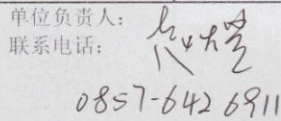 单位负责人:
联系电话:
0857-6426911